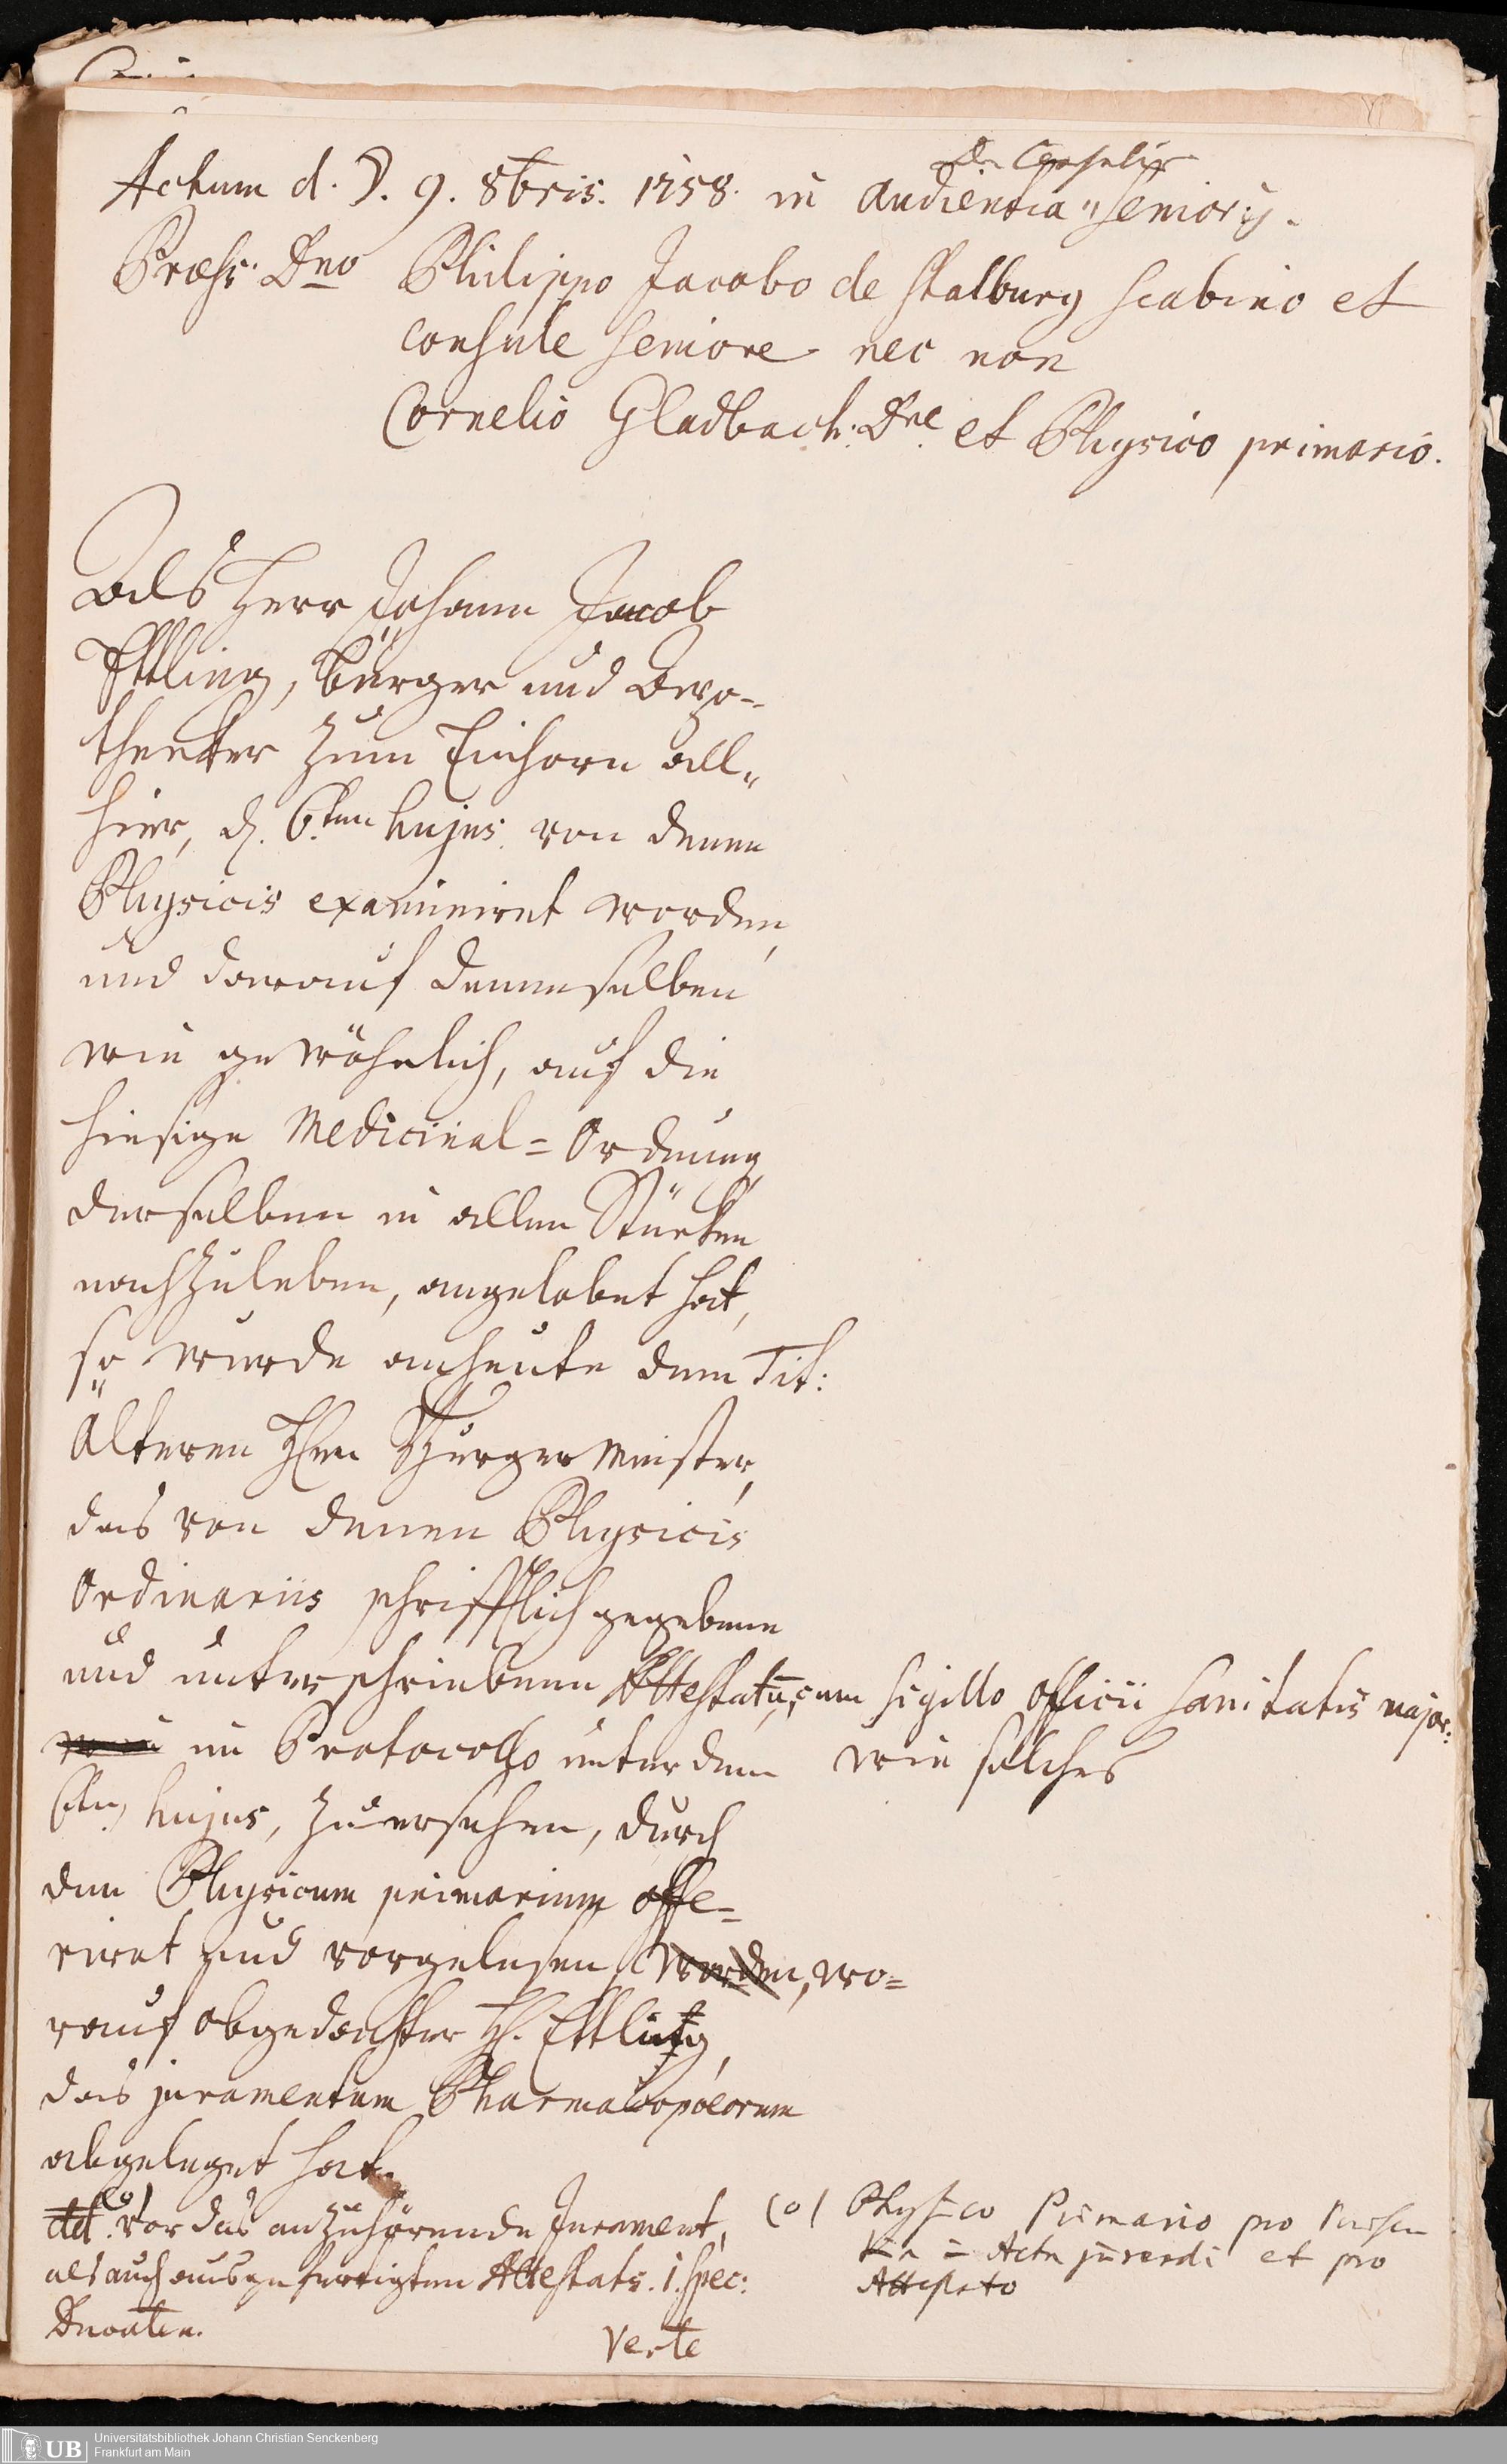 Dn Consulis
Actum d. ☽. 9. 8bris. 1758. in audientia " senioris.
Præs: Dno Philippo Jacobo de Stalburg Scabino et
Consule Seniore nec non
Cornelio Gladbach: Dre et Physico primario.
Als Herr Johann Jacob
Ettling, Bürger und Apo-
thecker zum Einhorn all-
hier, d. 6.ten hujus von denen
Physicis examiniret worden,
und darauf denenselben
wie gewöhnlich, auf die
hiesige Medicinal=Ordnung,
derselben in allen Stücken
nachzuleben, angelobet hat,
so wurde anheute dem Tit:
älteren Hhen Burgermeister,
das von denen Physicis
Ordinariis schrifftlich gegebene
und unterschriebene Attestatū, cum sigillo officii sanitatis major:
wie solches
im Protocollo unter dem
6ten hujus, zu ersehen, durch
den Physicum primarium offe=
riret und vorgelesen worden, wo=
rauf obgedachter H. Ettling,
das juramentum Pharmacopoeorum
abgeleget hat.
dd. (o) vor das anzuhörende Jurament,
als auch ausgefertigten Attestats. 1. spec:
Ducaten.
(o) Physico Primario pro
Actu jurendi et pro
Attestato
Verte
Universitätsbibliothek Johann Christian Senckenberg
UB
Frankfurt am Main